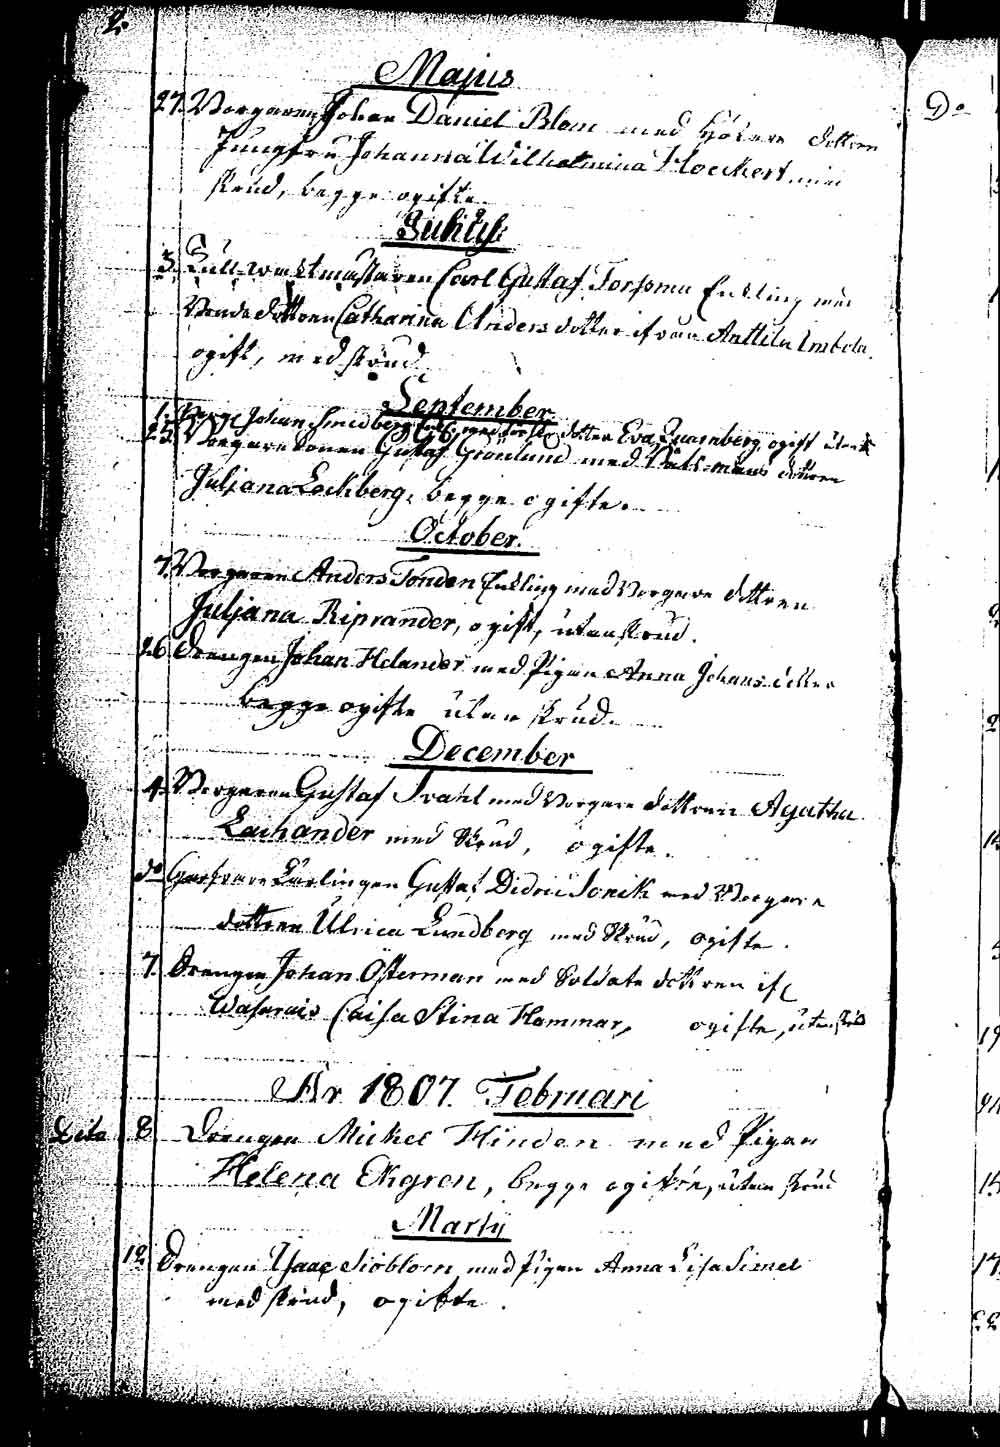 2.
Majus
27. Borgaren Johan Daniel Blom med dottren
Jungfru Johanna Wilhelmina Hoeckert, med
skrud, begge ogifte.
Julius
3. Tull-wacktmästaren Carl Gustaf Forsman Enkling med
Bonde dottren Catharina Andersdotter ifrån Anttila Imbola
ogift, med skrud
September
1. Johan Smedberg Enkl. med dotter Eva Quarnberg, ogift utan
25. Borgare sonen Gustaf Grönlund med dottren
Juliana Lockberg, begge ogifte.
October.
7. Borgaren Anders Tondon Enkling med Borgare dottren
Juliana Riprander, ogift, utan skrud.
26 Drengen Johan Helander med Pigan Anna Johansdotter
begge ogifte utan skrud.
December
4. Borgaren Gustaf Svahl med Borgare dottren Agatha
Lachander med skrud, ogifte.
do Garfvare Lärlingen Gustaf Didric Sonik med Borgare
dottren Ulrica Lundberg med skrud, ogifte.
7. Drengen Johan Österman med Soldate dottren
Caisa Stina Hammar, ogifte, utan skrud
År 1807. Februari
8 Drengen Mickel Hinden med Pigan
Helena Ekgren, begge ogifte, utan skrud
Martij
12 Drengen Isaac Siöblom med Pigan Anna Lisa Simel
med skrud, ogifte.
Do